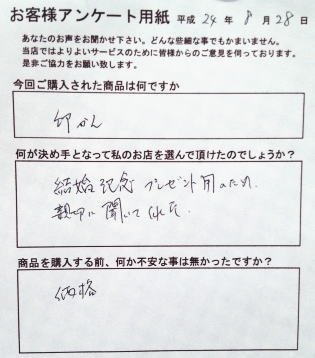 お客様アンケート用紙 平成 24 年 8 月 28 日
あなたのお声をお聞かせ下さい。どんな些細な事でもかまいません。
当店ではよりよいサービスのために皆様からのご意見を伺っております。
是非ご協力をお願い致します。
今回ご購入された商品は何ですか
印かん
何が決め手となって私のお店を選んで頂けたのでしょうか?
結婚記念プレゼント用のため、
親切に聞いてくれた
商品を購入する前、何か不安な事は無かったですか?
価格